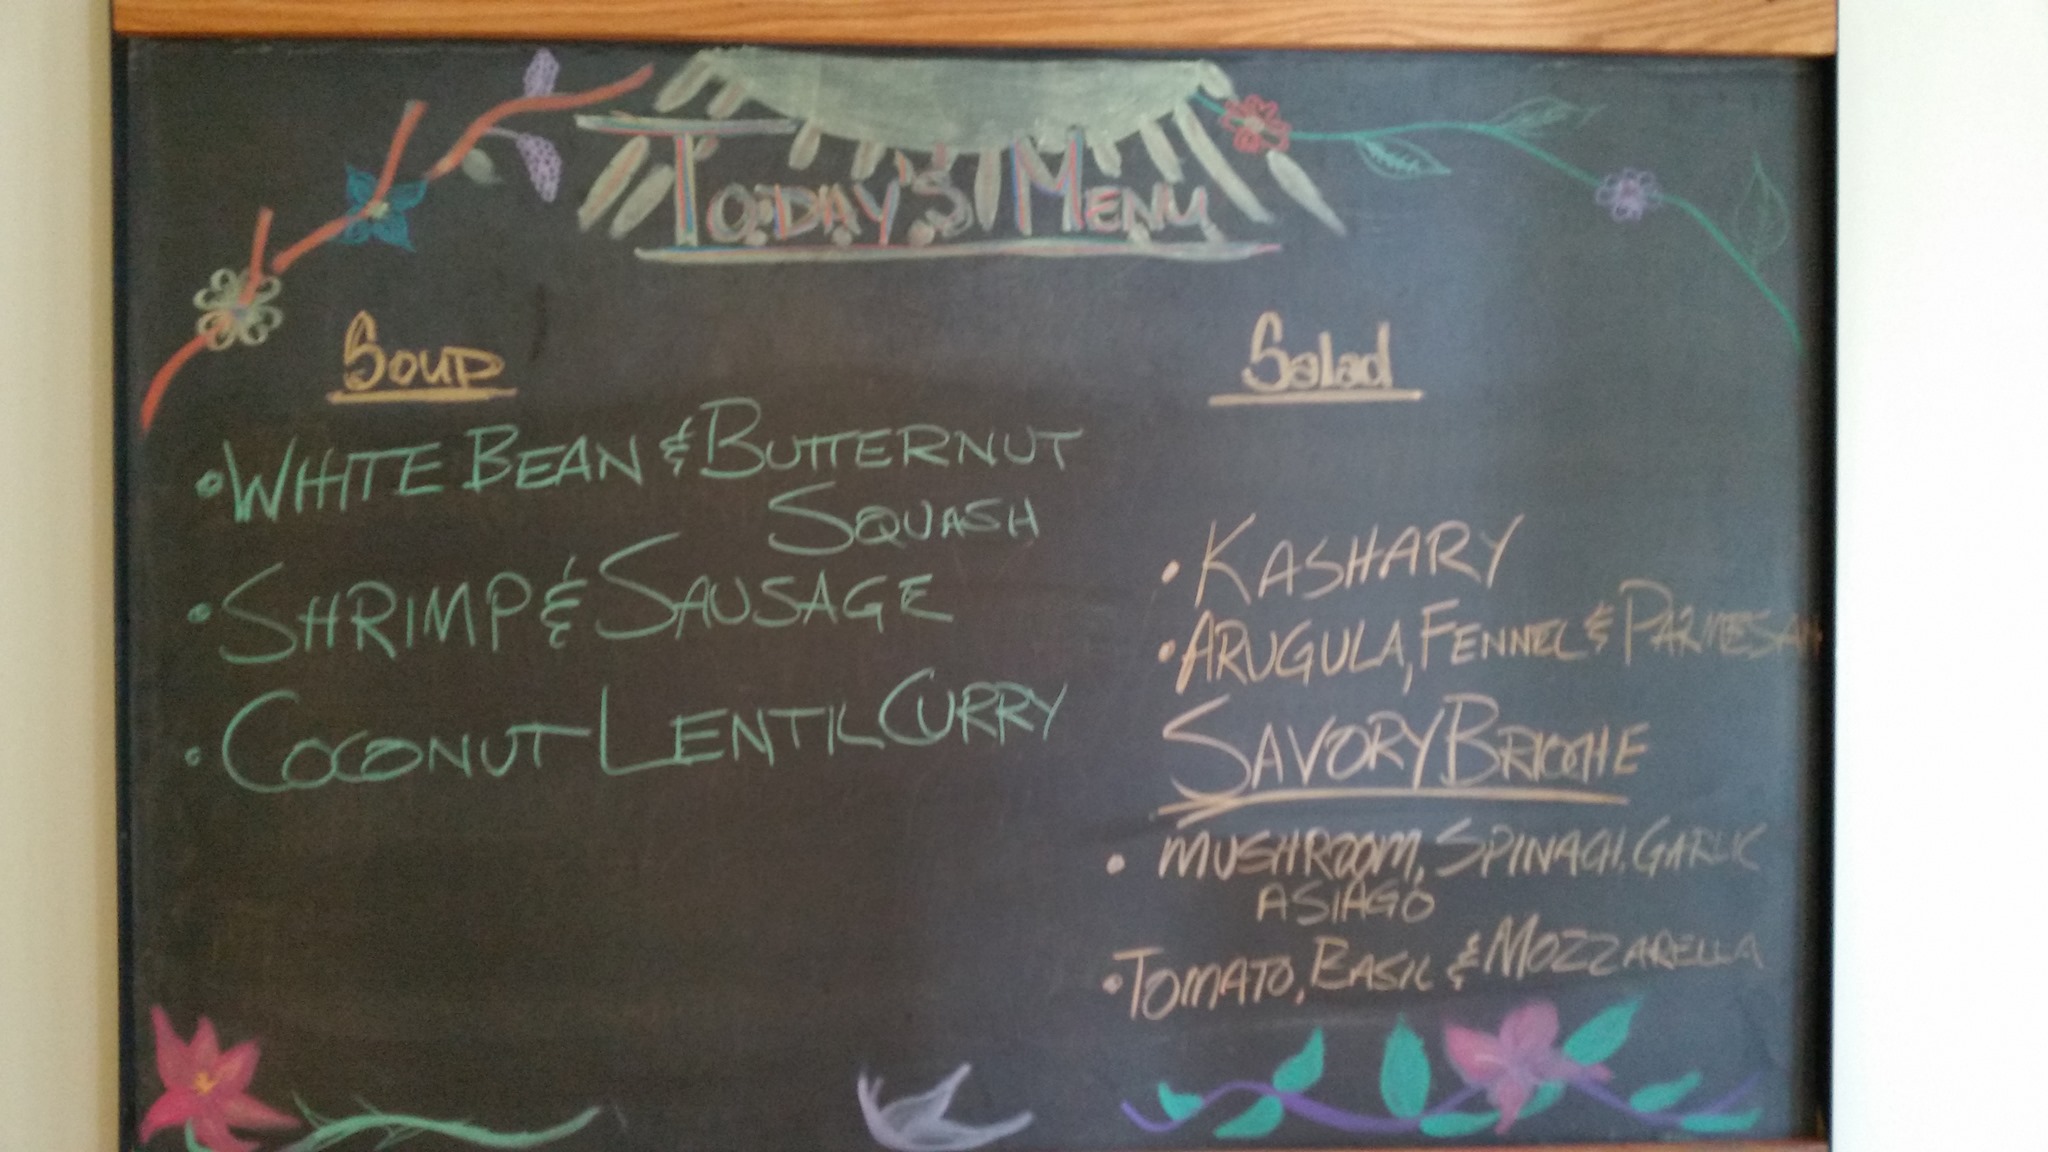 TODAY'S MENU
Soup
• WHITE BEAN & BUTTERNUT
SQUASH
• SHRIMP & SAUSAGE
• COCONUT LENTIL CURRY
Salad
• KASHARY
• ARUGULA, FENNEL & PARMESAN
SAVORY BRIOCHE
• MUSHROOM, SPINACH, GARLIC
ASIAGO
• TOMATO, BASIL & MOZZARELLA